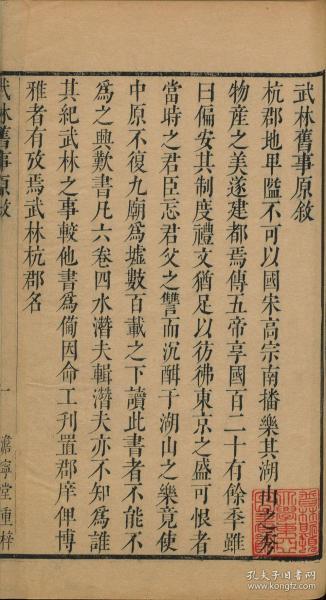 武林舊事原敘
杭郡地卑隘不可以國宋高宗南播樂其湖山之秀
物產之美遂建都焉傳五帝享國百二十有餘年雖
曰偏安其制度禮文猶足以彷彿東京之盛可恨者
當時之君臣忘君父之讐而沉酣于湖山之樂竟使
中原不復九廟為墟數百載之下讀此書者不能不
為之興歎書凡六卷四水潛夫輯潛夫亦不知為誰
其紀武林之事較他書為備因命工刊置郡庠俾博
雅者有攷焉武林杭郡名
武林舊事原敘
一
澹寧堂重梓
孔夫子旧书网